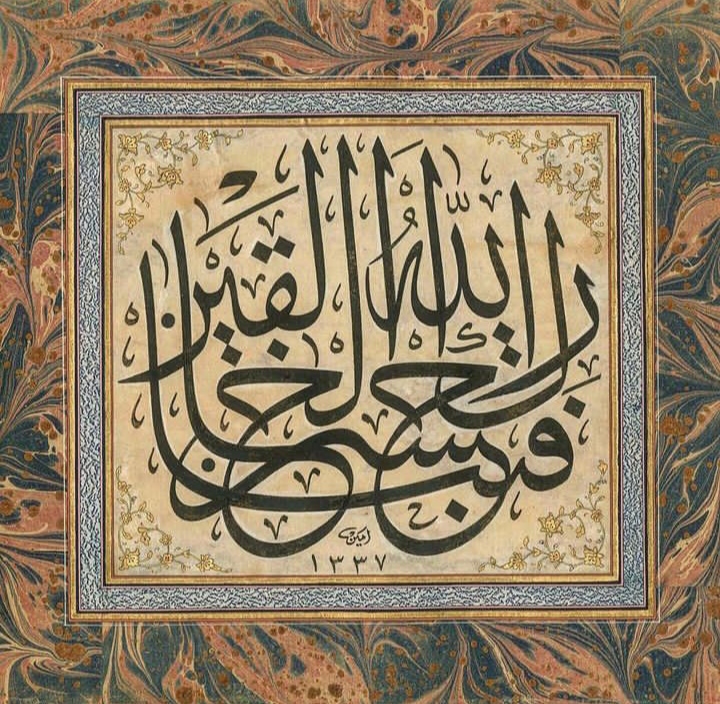 فتبارك الله احسن الخالقين
امين
١٣٣٧